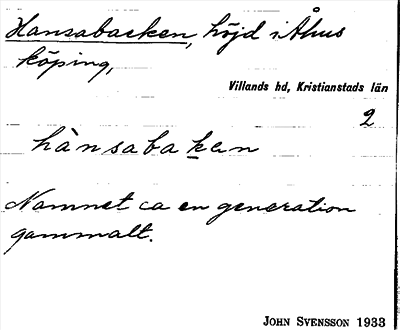 Hansabacken, höjd i Åhus
köping,
Villands hd, Kristianstads län
2
hànsabaken
Namnet ca en generation
gammalt.
JOHN SVENSSON 1933